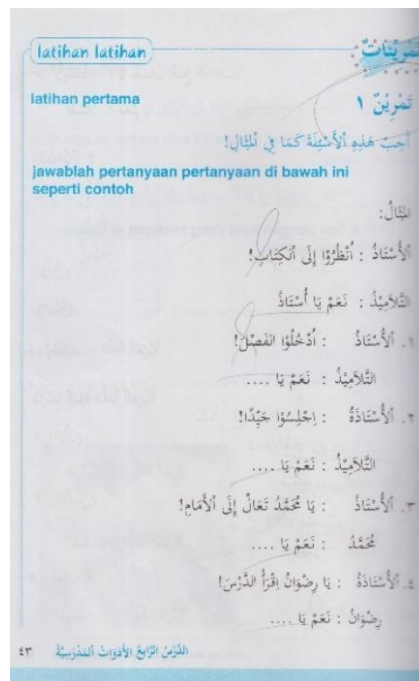 latihan latihan تَمْرِيْنَاتٌ
latihan pertama تَمْرِيْنٌ ١
أَجِبْ هَذِهِ ٱلْأَسْئِلَةَ كَمَا فِي ٱلْمِثَالِ!
jawablah pertanyaan pertanyaan di bawah ini
seperti contoh
ٱلْمِثَالُ:
ٱلْأُسْتَاذُ : أُنْظُرُوْا إِلَى ٱلْكِتَابِ!
التَّلَامِيْذُ : نَعَمْ يَا أُسْتَاذُ
١. ٱلْأُسْتَاذُ : أُدْخُلُوْا الفَصْلَ!
التَّلَامِيْذُ : نَعَمْ يَا ....
٢. ٱلْأُسْتَاذَةُ : اِجْلِسُوْا جَيِّدًا!
التَّلَامِيْذُ : نَعَمْ يَا ....
٣. ٱلْأُسْتَاذُ : يَا مُحَمَّدُ تَعَالْ إِلَى ٱلْأَمَامِ!
مُحَمَّدُ : نَعَمْ يَا ....
٤. ٱلْأُسْتَاذَةُ : يَا رِضْوَانُ اِقْرَأْ الدَّرْسَ!
رِضْوَانُ : نَعَمْ يَا ....
الدَّرْسُ الرَّابِعُ الأَدَوَاتُ ٱلْمَدْرَسِيَّةُ ٤٣